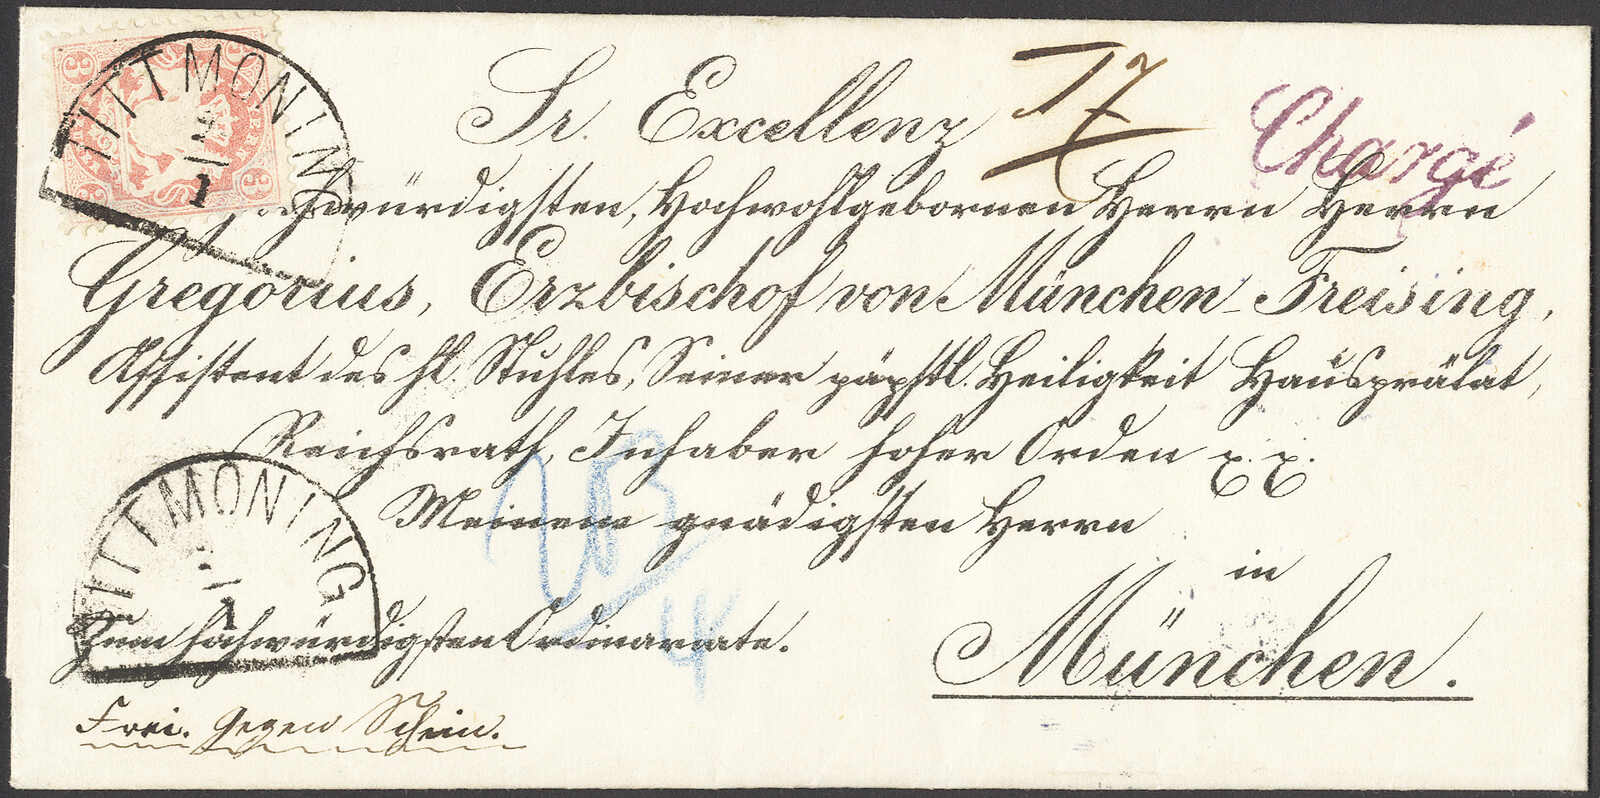 TITTMONING
2
1
Sr. Excellenz
Chargé
hochwürdigsten, Hochwohlgebornen Herrn Herrn
Gregorius, Erzbischof von München-Freising,
Assistent des hl. Stuhles, Seiner päpstl. Heiligkeit Hausprälat,
Reichsrath, Inhaber hoher Orden x. x.
Meinem gnädigsten Herrn
in
München.
TITTMONING
1
Zum hochwürdigsten Ordinariate.
Frei. Gegen Schein.
3
3
3